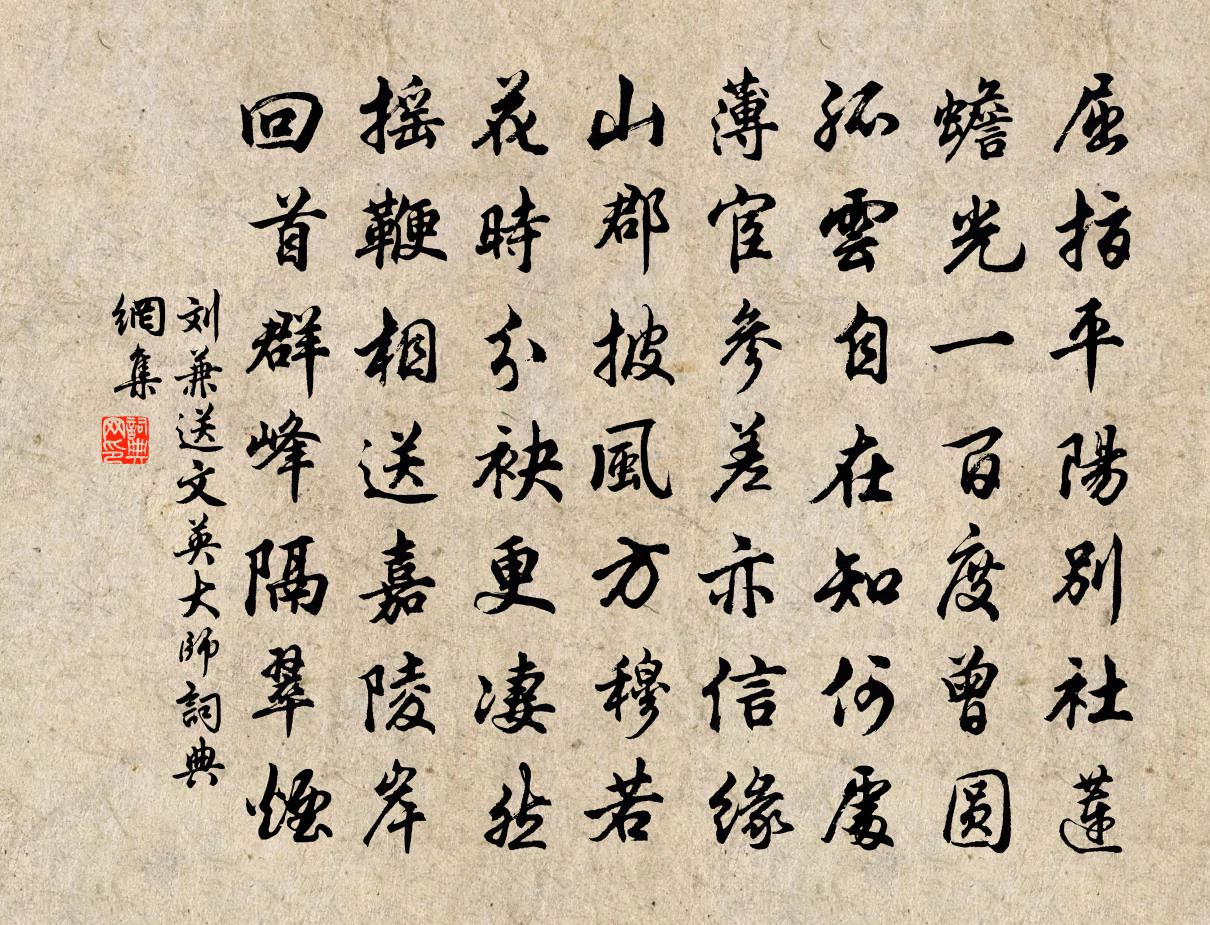 屈指平陽別社蓮
蟾光一百度曾圓
孤雲自在知何處
薄宦參差亦信緣
山郡披風方穆若
花時分袂更凄然
搖鞭相送嘉陵岸
回首群峰隔翠煙
刘兼送文英大師詞典
網集
詞典网印